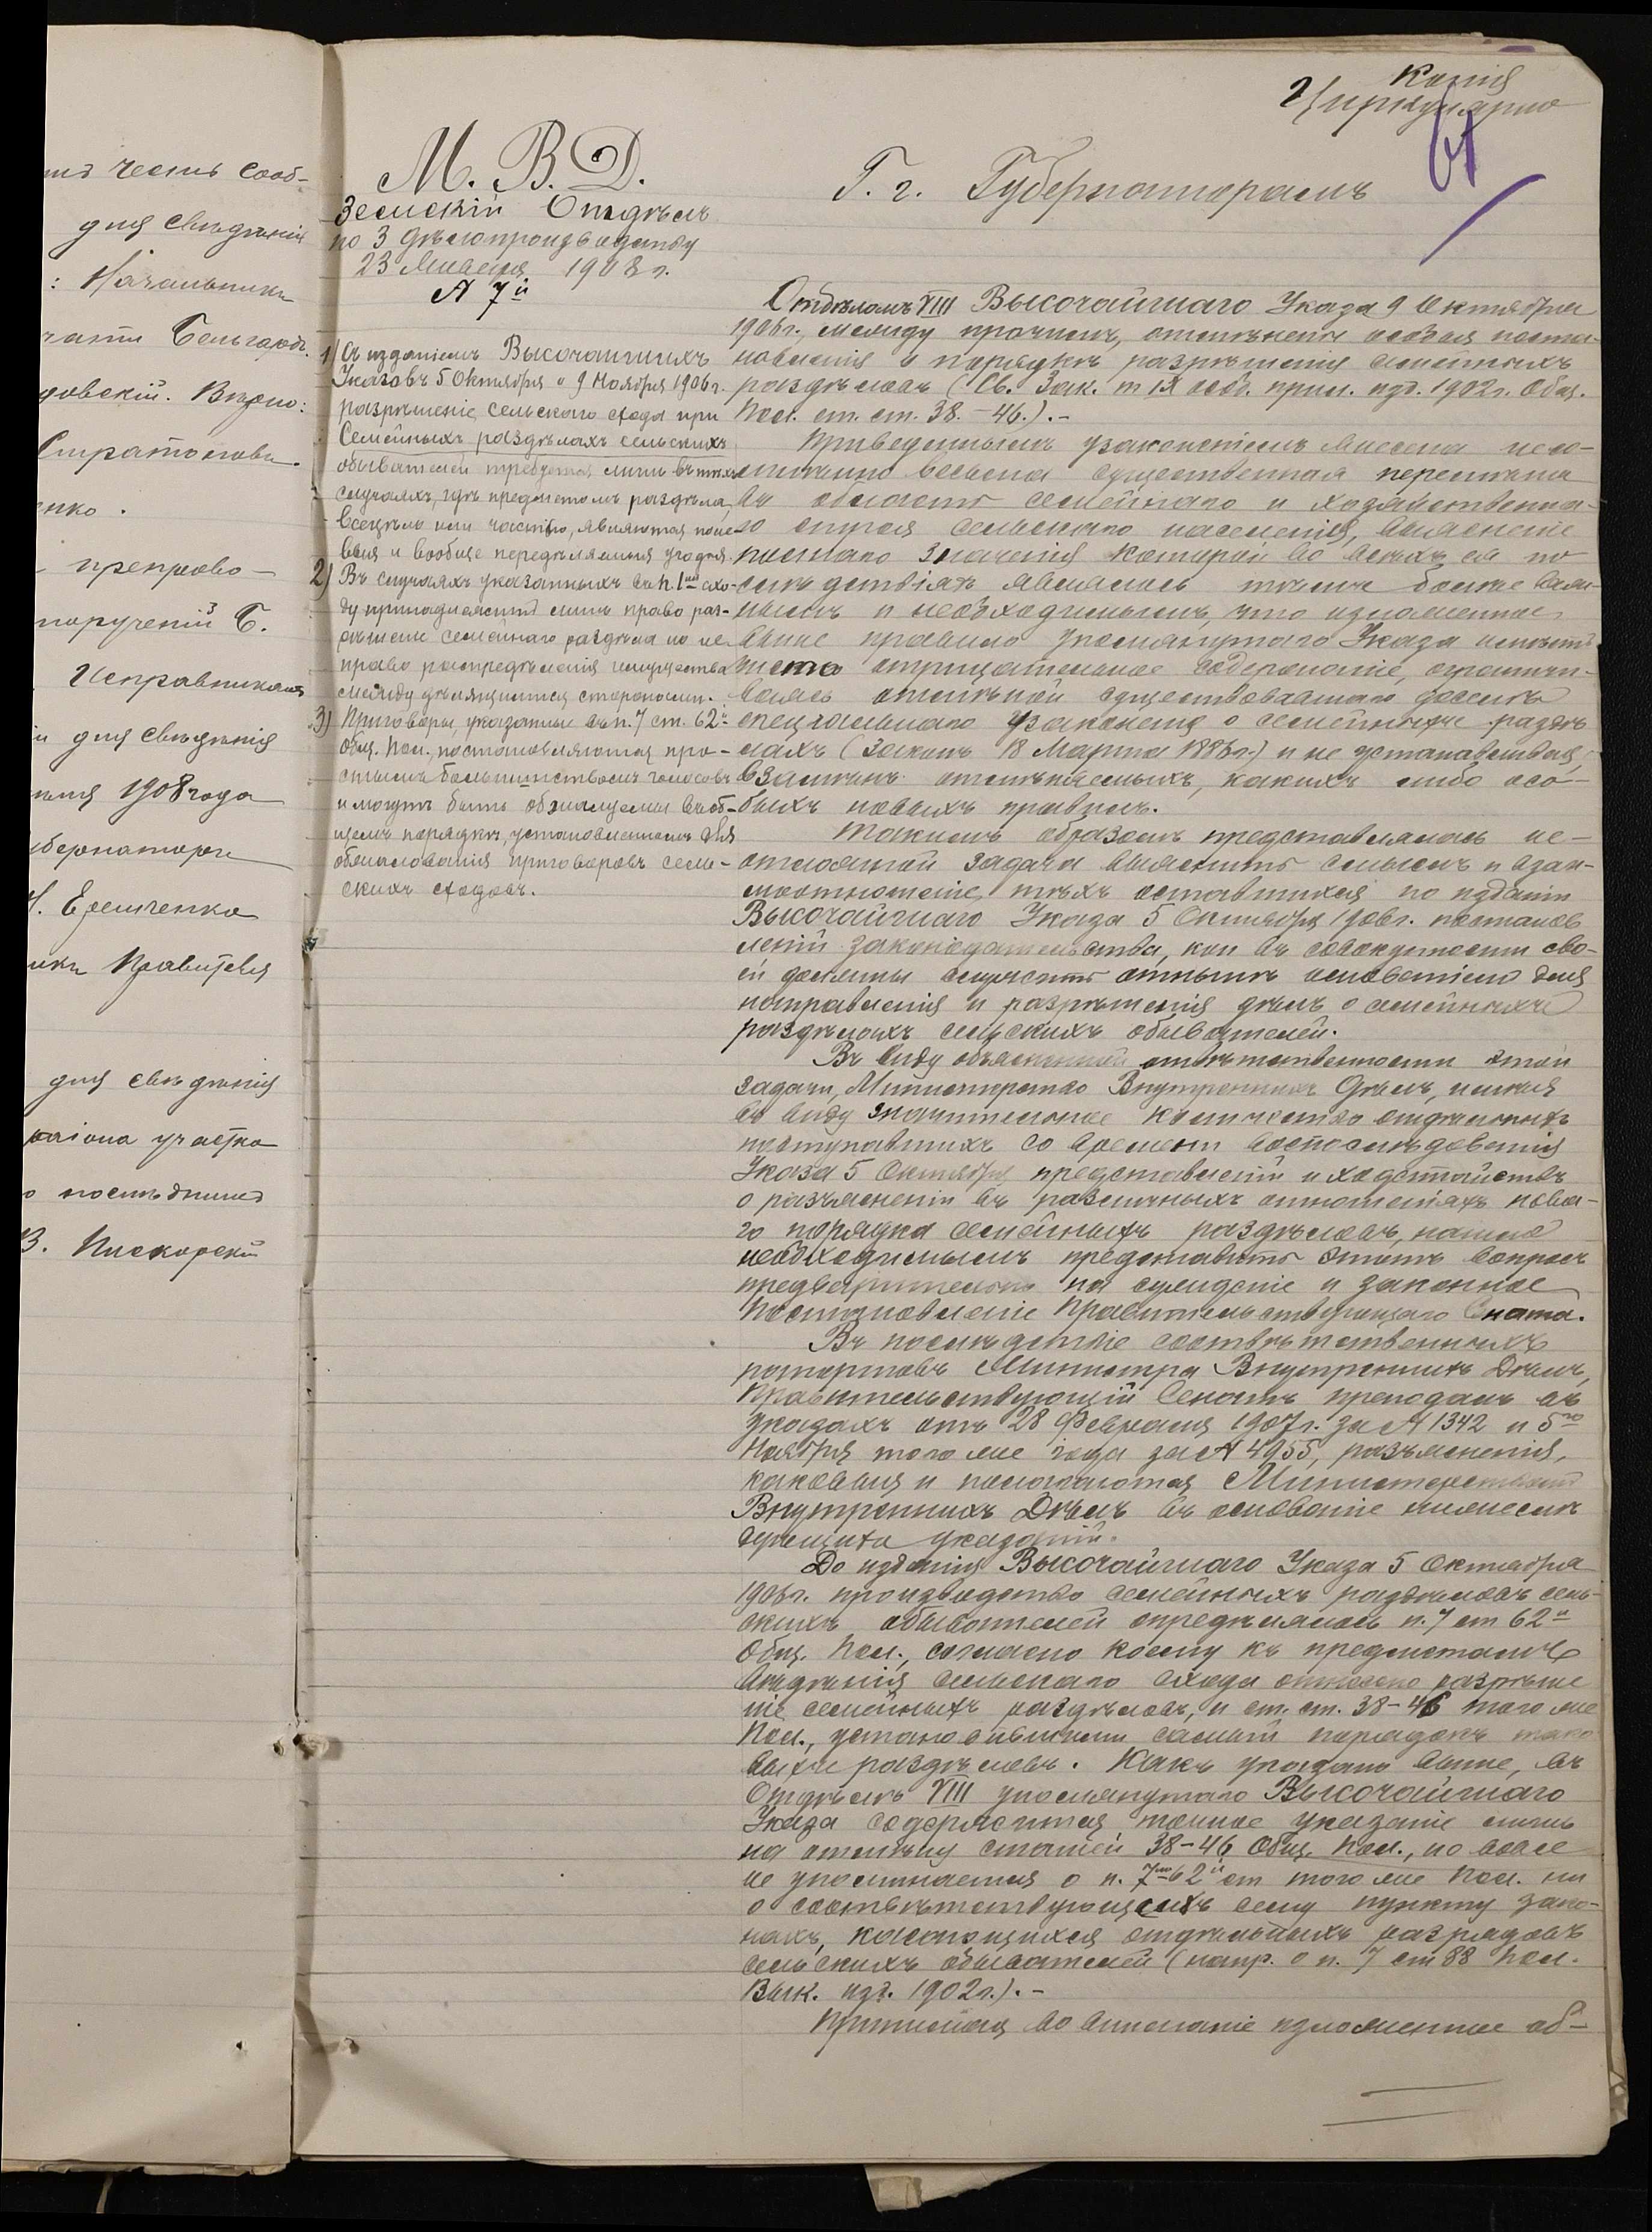 Копія
Циркулярно
61
итъ честь сооб-
для свѣдѣнія
: Начальника
части Бѣлгород.
довскій. Вѣрно:
нко.
- препрово-
порученій Б.
Исправникамъ
и для свѣдѣнія
1908 года
бернатора
Н. Еремченко
ика Правителя
для свѣдѣнія
раіона участка
о послѣднимъ
В. Пискорскій
М. В. Д.
Земскій Отдѣлъ
по 3 дѣлопроизводству
23 Января 1908 г.
№ 7й
1) Съ изданіемъ Высочайшихъ
Указовъ 5 Октября и 9 Ноября 1906 г.
разрѣшеніе сельскаго схода при
Семейныхъ раздѣлахъ сельскихъ
обывателей требуется лишь въ тѣхъ
случаяхъ, гдѣ предметомъ раздѣла,
всецѣло или частью, являются поле-
выя и вообще передѣляемыя угодья.
2) Въ случаяхъ указанныхъ въ п. 1мъ схо-
ду принадлежитъ лишь право раз-
рѣшенія семейнаго раздѣла но не
право распредѣленія имущества
между дѣлящимися сторонами.
3) Приговоры, указанные въ п. 7 ст. 62й
Общ. Пол., постановляются про-
стымъ большинствомъ голосовъ
и могутъ быть обжалуемы въ об-
щемъ порядкѣ, установленномъ для
обжалованія приговоровъ сель-
скихъ сходовъ.
Г. г. Губернаторамъ
Отдѣломъ VIII Высочайшаго Указа 9 Октября
1906 г., между прочимъ, отмѣнены особыя поста-
новленія о порядкѣ разрѣшенія семейныхъ
раздѣловъ (Св. Зак. т IX особ. прил. изд. 1902 г. Общ.
Пол. ст. ст. 38. - 46.). -
Приведеннымъ узаконеніемъ внесена несо-
мнѣнно весьма существенная перемѣна
въ область семейнаго и хозяйственна-
го строя сельскаго населенія, выясненіе
полнаго значенія которой во всѣхъ ея по-
слѣдствіяхъ являлось тѣмъ болѣе важ-
нымъ и необходимымъ, что изложенное
выше правило упомянутаго Указа имѣетъ
чисто отрицательное содержаніе, ограничи-
ваясь отмѣной существовавшаго доселѣ
спеціальнаго узаконенія о семейныхъ раздѣ
лахъ (законъ 18 Марта 1886 г.) и не устанавливая,
взамѣнъ отмѣняемыхъ, какихъ либо осо-
быхъ новыхъ правилъ.
Такимъ образомъ представлялась не-
отложной задача выяснить смыслъ и взаи-
моотношеніе тѣхъ оставшихся по изданіи
Высочайшаго Указа 5 Октября 1906 г. постанов
леній законодательства, кои въ совокупности сво-
ей должны служить отнынѣ основаніемъ для
направленія и разрѣшенія дѣлъ о семейныхъ
раздѣлахъ сельскихъ обывателей.
Въ виду объясненной отвѣтственности этой
задачи, Министерство Внутреннихъ Дѣлъ, имѣя
въ виду значительное количество отдѣльныхъ
поступавшихъ со времени воспослѣдованія
Указа 5 Октября представленій и ходатайствъ
о разъясненіи въ различныхъ отношеніяхъ ново-
го порядка семейныхъ раздѣловъ, нашло
необходимымъ представить этотъ вопросъ
предварительно на сужденіе и законное
Постановленіе Правительствующаго Сената.
Въ послѣдствіе соотвѣтственныхъ
рапортовъ Министра Внутреннихъ Дѣлъ,
Правительствующій Сенатъ преподалъ въ
указахъ отъ 28 Февраля 1907 г. за № 1342 и 5го
Ноября того же года за № 4955, разъясненія,
каковыя и полагаются Министерствомъ
Внутреннихъ Дѣлъ въ основаніе нижеслѣ
дующихъ указаній.
До изданія Высочайшаго Указа 5 Октября
1906 г. производство семейныхъ раздѣловъ сель-
скихъ обывателей опредѣлялось п. 7 ст 62й
Общ. Пол., согласно коему къ предметамъ
вѣдѣнія сельскаго схода отнесено разрѣше
ніе семейныхъ раздѣловъ, и ст. ст. 38-46 того же
Пол., установившими самый порядокъ тако
выхъ раздѣловъ. Какъ указано выше, въ
Отдѣлѣ VIII упомянутаго Высочайшаго
Указа содержится точное указаніе лишь
на отмѣну статей 38-46 Общ. Пол., но вовсе
не упоминается о п. 7мъ 62й ст того же Пол. ни
о соотвѣтствующихъ сему пункту зако-
нахъ, касающихся отдѣльныхъ разрядовъ
сельскихъ обывателей (напр. о п. 7 ст 88 Пол.
Вык. изд. 1902 г.). -
Принимая во вниманіе изложенное об-